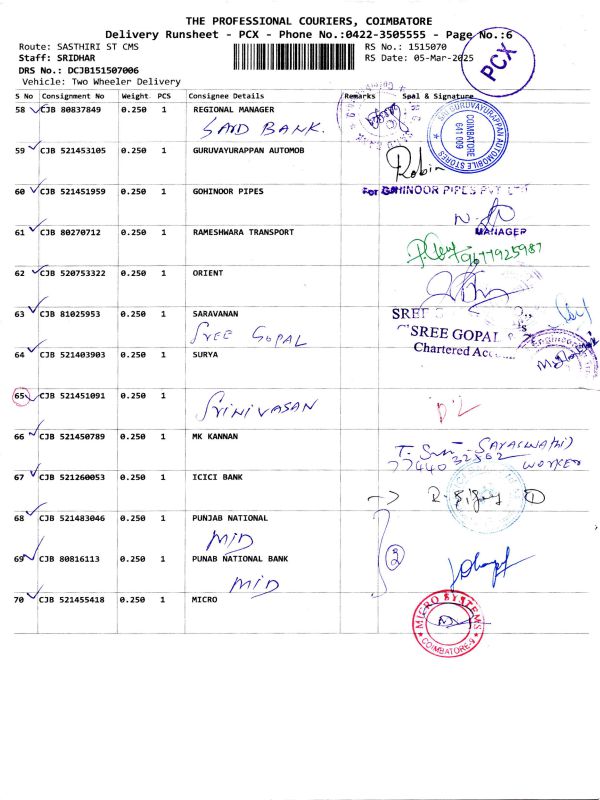 THE PROFESSIONAL COURIERS, COIMBATORE
Delivery Runsheet - PCX - Phone No.:0422-3505555 - Page No.:6
Route: SASTHIRI ST CMS
RS No.: 1515070
Staff: SRIDHAR
RS Date: 05-Mar-2025
DRS No.: DCJB151507006
Vehicle: Two Wheeler Delivery
PCX
S No Consignment No Weight PCS Consignee Details Remarks Seal & Signature
58 CJB 80837849 0.250 1 REGIONAL MANAGER
BANK.
59 CJB 521453105 0.250 1 GURUVAYURAPPAN AUTOMOB
SRI GURUVAYURAPPAN AUTOMOBILE STORES
COIMBATORE
641 009
Robin
60 CJB 521451959 0.250 1 GOHINOOR PIPES
For GOHINOOR PIPES PVT LTD
MANAGER
61 CJB 80270712 0.250 1 RAMESHWARA TRANSPORT
9677925987
62 CJB 520753322 0.250 1 ORIENT
63 CJB 81025953 0.250 1 SARAVANAN
SREE GOPAL
SREE
"SREE GOPAL
Chartered
64 CJB 521403903 0.250 1 SURYA
65 CJB 521451091 0.250 1
SRINIVASAN
D'L
66 CJB 521450789 0.250 1 MK KANNAN
SARASWATHI
WORKER
67 CJB 521260053 0.250 1 ICICI BANK
68 CJB 521483046 0.250 1 PUNJAB NATIONAL
MID
69 CJB 80816113 0.250 1 PUNAB NATIONAL BANK
MID
2
70 CJB 521455418 0.250 1 MICRO
MICRO SYSTEMS
COIMBATORE-9